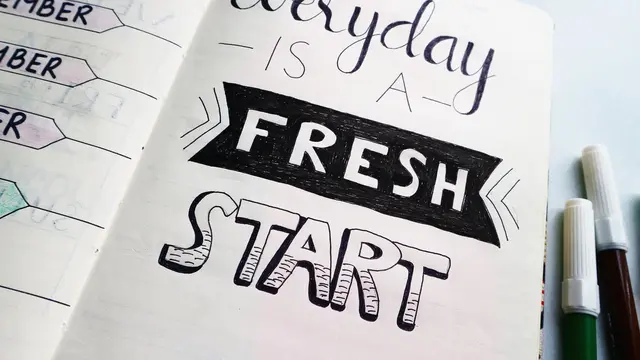 EMBER
MBER
ER
everyday
— IS
A —
FRESH
START